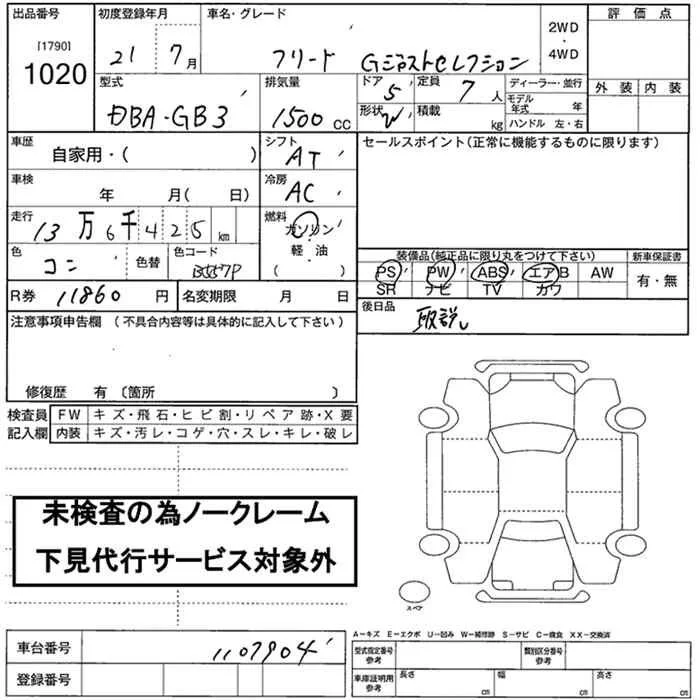 出品番号 初度登録年月 車名・グレード 2WD・4WD 評価点
[1790]
1020
21 7月 フリード Gジャストセレクション
外装 内装
型式 DBA-GB3
排気量 1500 CC
ドア 5 定員 7人 ディーラー・並行
形状 W 積載 kg モデル年式 年
ハンドル 左・右
車歴 自家用・( )
シフト AT
セールスポイント(正常に機能するものに限ります)
車検 年 月( 日)
冷房 AC
走行 13万6千425km
燃料 ガソリン・軽・油 ( )
色 コン 色替 色コード
装備品(純正品に限り丸をつけて下さい) 新車保証書
PS PW ABS エアB AW 有・無
SR ナビ TV カワ
R券 11860円 名変期限 月 日
後日品 取説
注意事項申告欄(不具合内容等は具体的に記入して下さい)
修復歴 有〔箇所 〕
検査員 FW キズ・飛石・ヒビ割・リペア跡・X要
記入欄 内装 キズ・汚レ・コゲ・穴・スレ・キレ・破レ
未検査の為ノークレーム
下見代行サービス対象外
スペア
A－キズ E－エクボ U－凹み W－補修跡 S－サビ C－腐食 XX－交換済
車台番号 1107904
型式指定番号 参考 類別区分番号 参考
登録番号
車庫証明用 参考 長さ cm 幅 cm 高さ cm